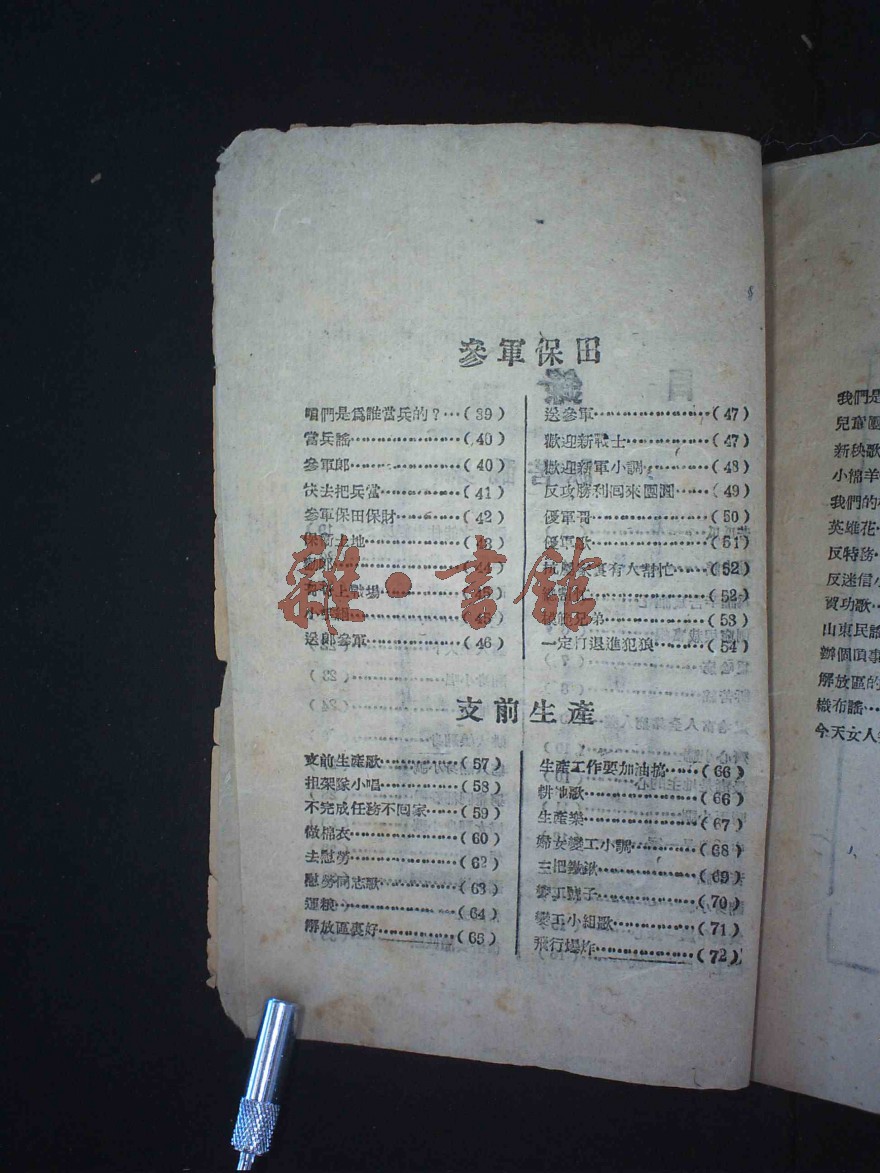 參軍保田
咱們是爲誰當兵的？…(39)
當兵謠…………(40)
參軍郎…………(40)
快去把兵當…………(41)
參軍保田保財…………(42)
保衛土地…………(43)
郎…………(44)
上戰場…………(45)
小 組…………(45)
送郎參軍…………(46)
送參軍…………(47)
歡迎新戰士…………(47)
歡迎新軍小調…………(48)
反攻勝利回來團圓……(49)
優軍哥…………(50)
優軍歌…………(51)
抗屬家裏有人幫忙……(52)
幫忙…………(52)
兄弟…………(53)
一定打退進犯狼…………(54)
支前生產
支前生產歌…………(57)
担架隊小唱…………(58)
不完成任務不回家……(59)
做棉衣…………(60)
去慰勞…………(62)
慰勞同志歌…………(63)
運糧…………(64)
解放區裏好…………(65)
生產工作要加油搞……(66)
耕地歌…………(66)
生產樂…………(67)
婦女變工小調…………(68)
三把鋤鍬…………(69)
變工號子…………(70)
變工小組歌…………(71)
飛行爆炸…………(72)
雜·書館
我們是
兒童團
新秧歌
小棉羊
我們的
英雄花
反特務
反迷信小
賀功歌…
山東民謠
辦個頂事
解放區的
織布謠…
今天女人